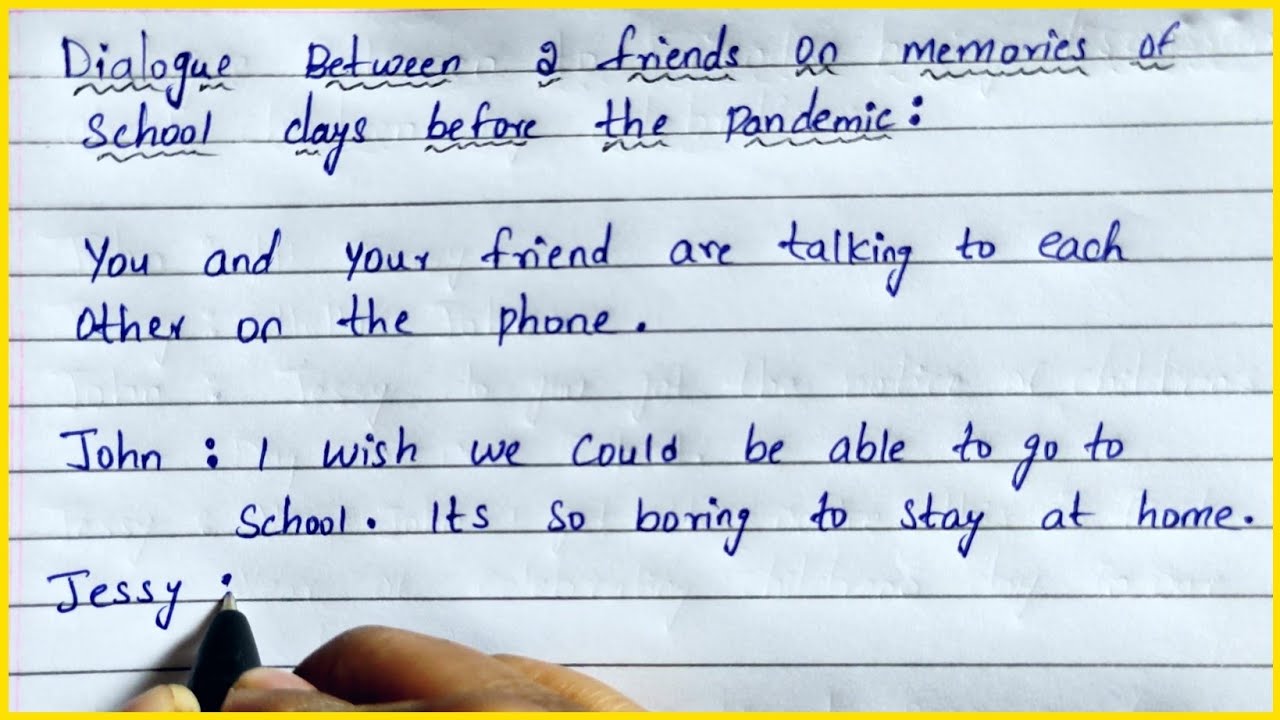 Dialogue Between 2 friends on memories of
School days before the Pandemic:
You and your friend are talking to each
other on the phone.
John : I wish we could be able to go to
School. Its so boring to stay at home.
Jessy :